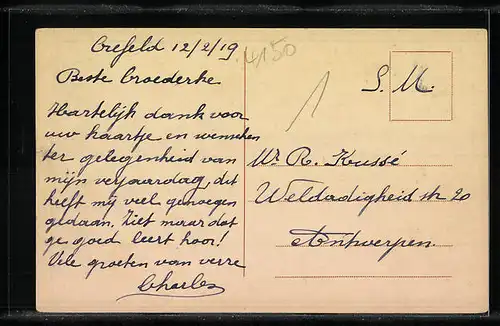 Crefeld 12/2/19
Beste broederke
Hartelijk dank voor
uw kaartje en wenschen
ter gelegenheid van
mijn verjaardag, dit
heeft mij veel genoegen
gedaan. Ziet maar dat
ge goed leert hoor!
Vele groeten van verre
Charles
4150
1
S. M.
Mr R. Kussé
Weldadigheid str 20
Antwerpen